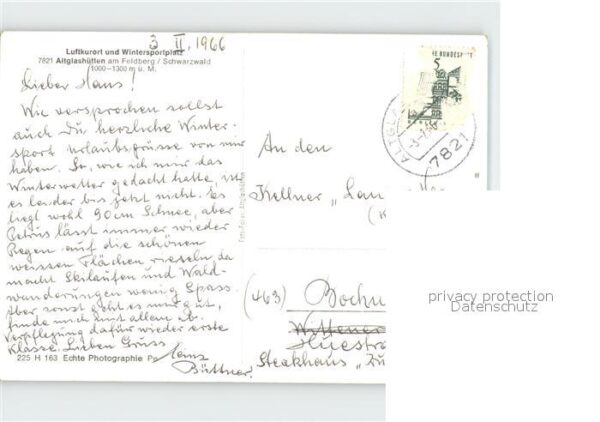 3. II. 1966
Luftkurort und Wintersportplatz
7821 Altglashütten am Feldberg / Schwarzwald
1000–1300 m ü. M.
Lieber Hans!
Wie versprochen sollst
auch Du herzliche Winter-
sport urlaubsgrüsse von mir
haben. So, wie ich mir das
Winterwetter gedacht hatte, ist
es leider bis jetzt nicht. Es
liegt wohl 90 cm Schnee, aber
Petrus lässt immer wieder
Regen auf die schönen
weissen Flächen rieseln, da
macht Skilaufen und Wald-
wanderungen wenig Spass.
Aber sonst geht es mir gut,
finde mich mit allem ab.
Verpflegung dafür wieder erste
Klasse. Lieben Gruss
Heinz
Büttner.
225 H 163 Echte Photographie
E BUNDESP
5
ALTGLA
7821
An den
Kellner „
(463) Bochu
Wittener
Huestra
Steakhaus „Zu
privacy protection
Datenschutz